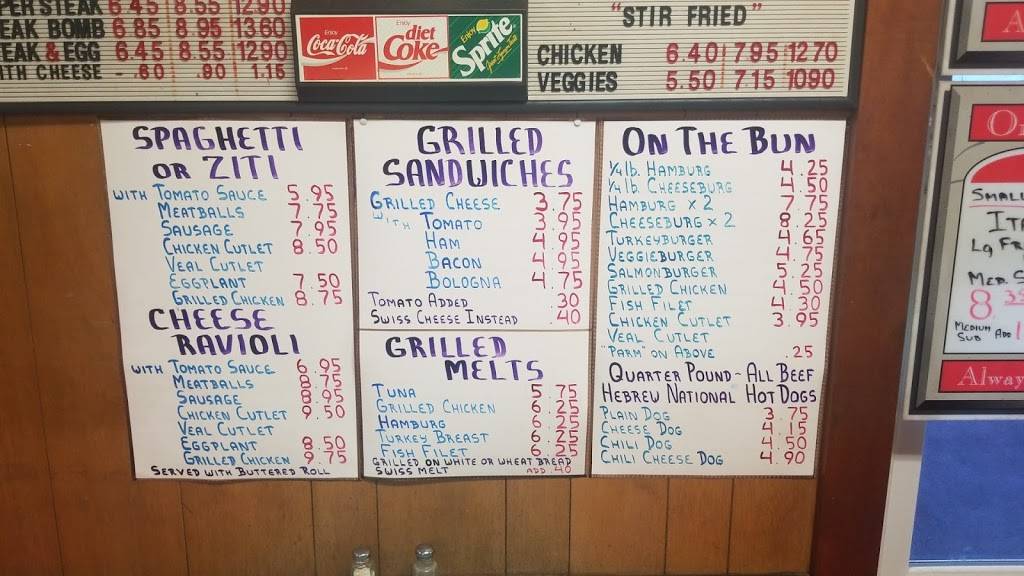 PER STEAK 6.45 8.55 1290
EAK BOMB 6.85 8.95 1360
EAK & EGG 6.45 8.55 1290
ITH CHEESE - .60 .90 1.15
Enjoy
Coca-Cola
Enjoy
diet
Coke
Enjoy
Sprite
"STIR FRIED"
CHICKEN 6.40 7.95 1270
VEGGIES 5.50 7.15 1090
SPAGHETTI
OR ZITI
WITH TOMATO SAUCE 5.95
MEATBALLS 7.75
SAUSAGE 7.95
CHICKEN CUTLET 8.50
VEAL CUTLET
EGGPLANT 7.50
GRILLED CHICKEN 8.75
CHEESE
RAVIOLI
WITH TOMATO SAUCE 6.95
MEATBALLS 8.75
SAUSAGE 8.95
CHICKEN CUTLET 9.50
VEAL CUTLET
EGGPLANT 8.50
GRILLED CHICKEN 9.75
SERVED WITH BUTTERED ROLL
GRILLED
SANDWICHES
GRILLED CHEESE 3.75
WITH TOMATO 3.95
HAM 4.95
BACON 4.95
BOLOGNA 4.75
TOMATO ADDED .30
SWISS CHEESE INSTEAD .40
GRILLED
MELTS
TUNA 5.75
GRILLED CHICKEN 6.25
HAMBURG 6.25
TURKEY BREAST 6.75
FISH FILET 6.25
GRILLED ON WHITE OR WHEAT BREAD
SWISS MELT ADD .40
ON THE BUN
1/4 lb. HAMBURG 4.25
1/4 lb. CHEESEBURG 4.50
HAMBURG x 2 7.75
CHEESEBURG x 2 8.25
TURKEYBURGER 4.65
VEGGIEBURGER 4.75
SALMONBURGER 5.25
GRILLED CHICKEN 4.50
FISH FILET 4.30
CHICKEN CUTLET 3.95
VEAL CUTLET
"PARM" ON ABOVE .25
QUARTER POUND - ALL BEEF
HEBREW NATIONAL HOT DOGS
PLAIN DOG 3.75
CHEESE DOG 4.15
CHILI DOG 4.50
CHILI CHEESE DOG 4.90
SMALL
ITA
LG FR
MED. S
8
MEDIUM
SUB ADD 1
Alway